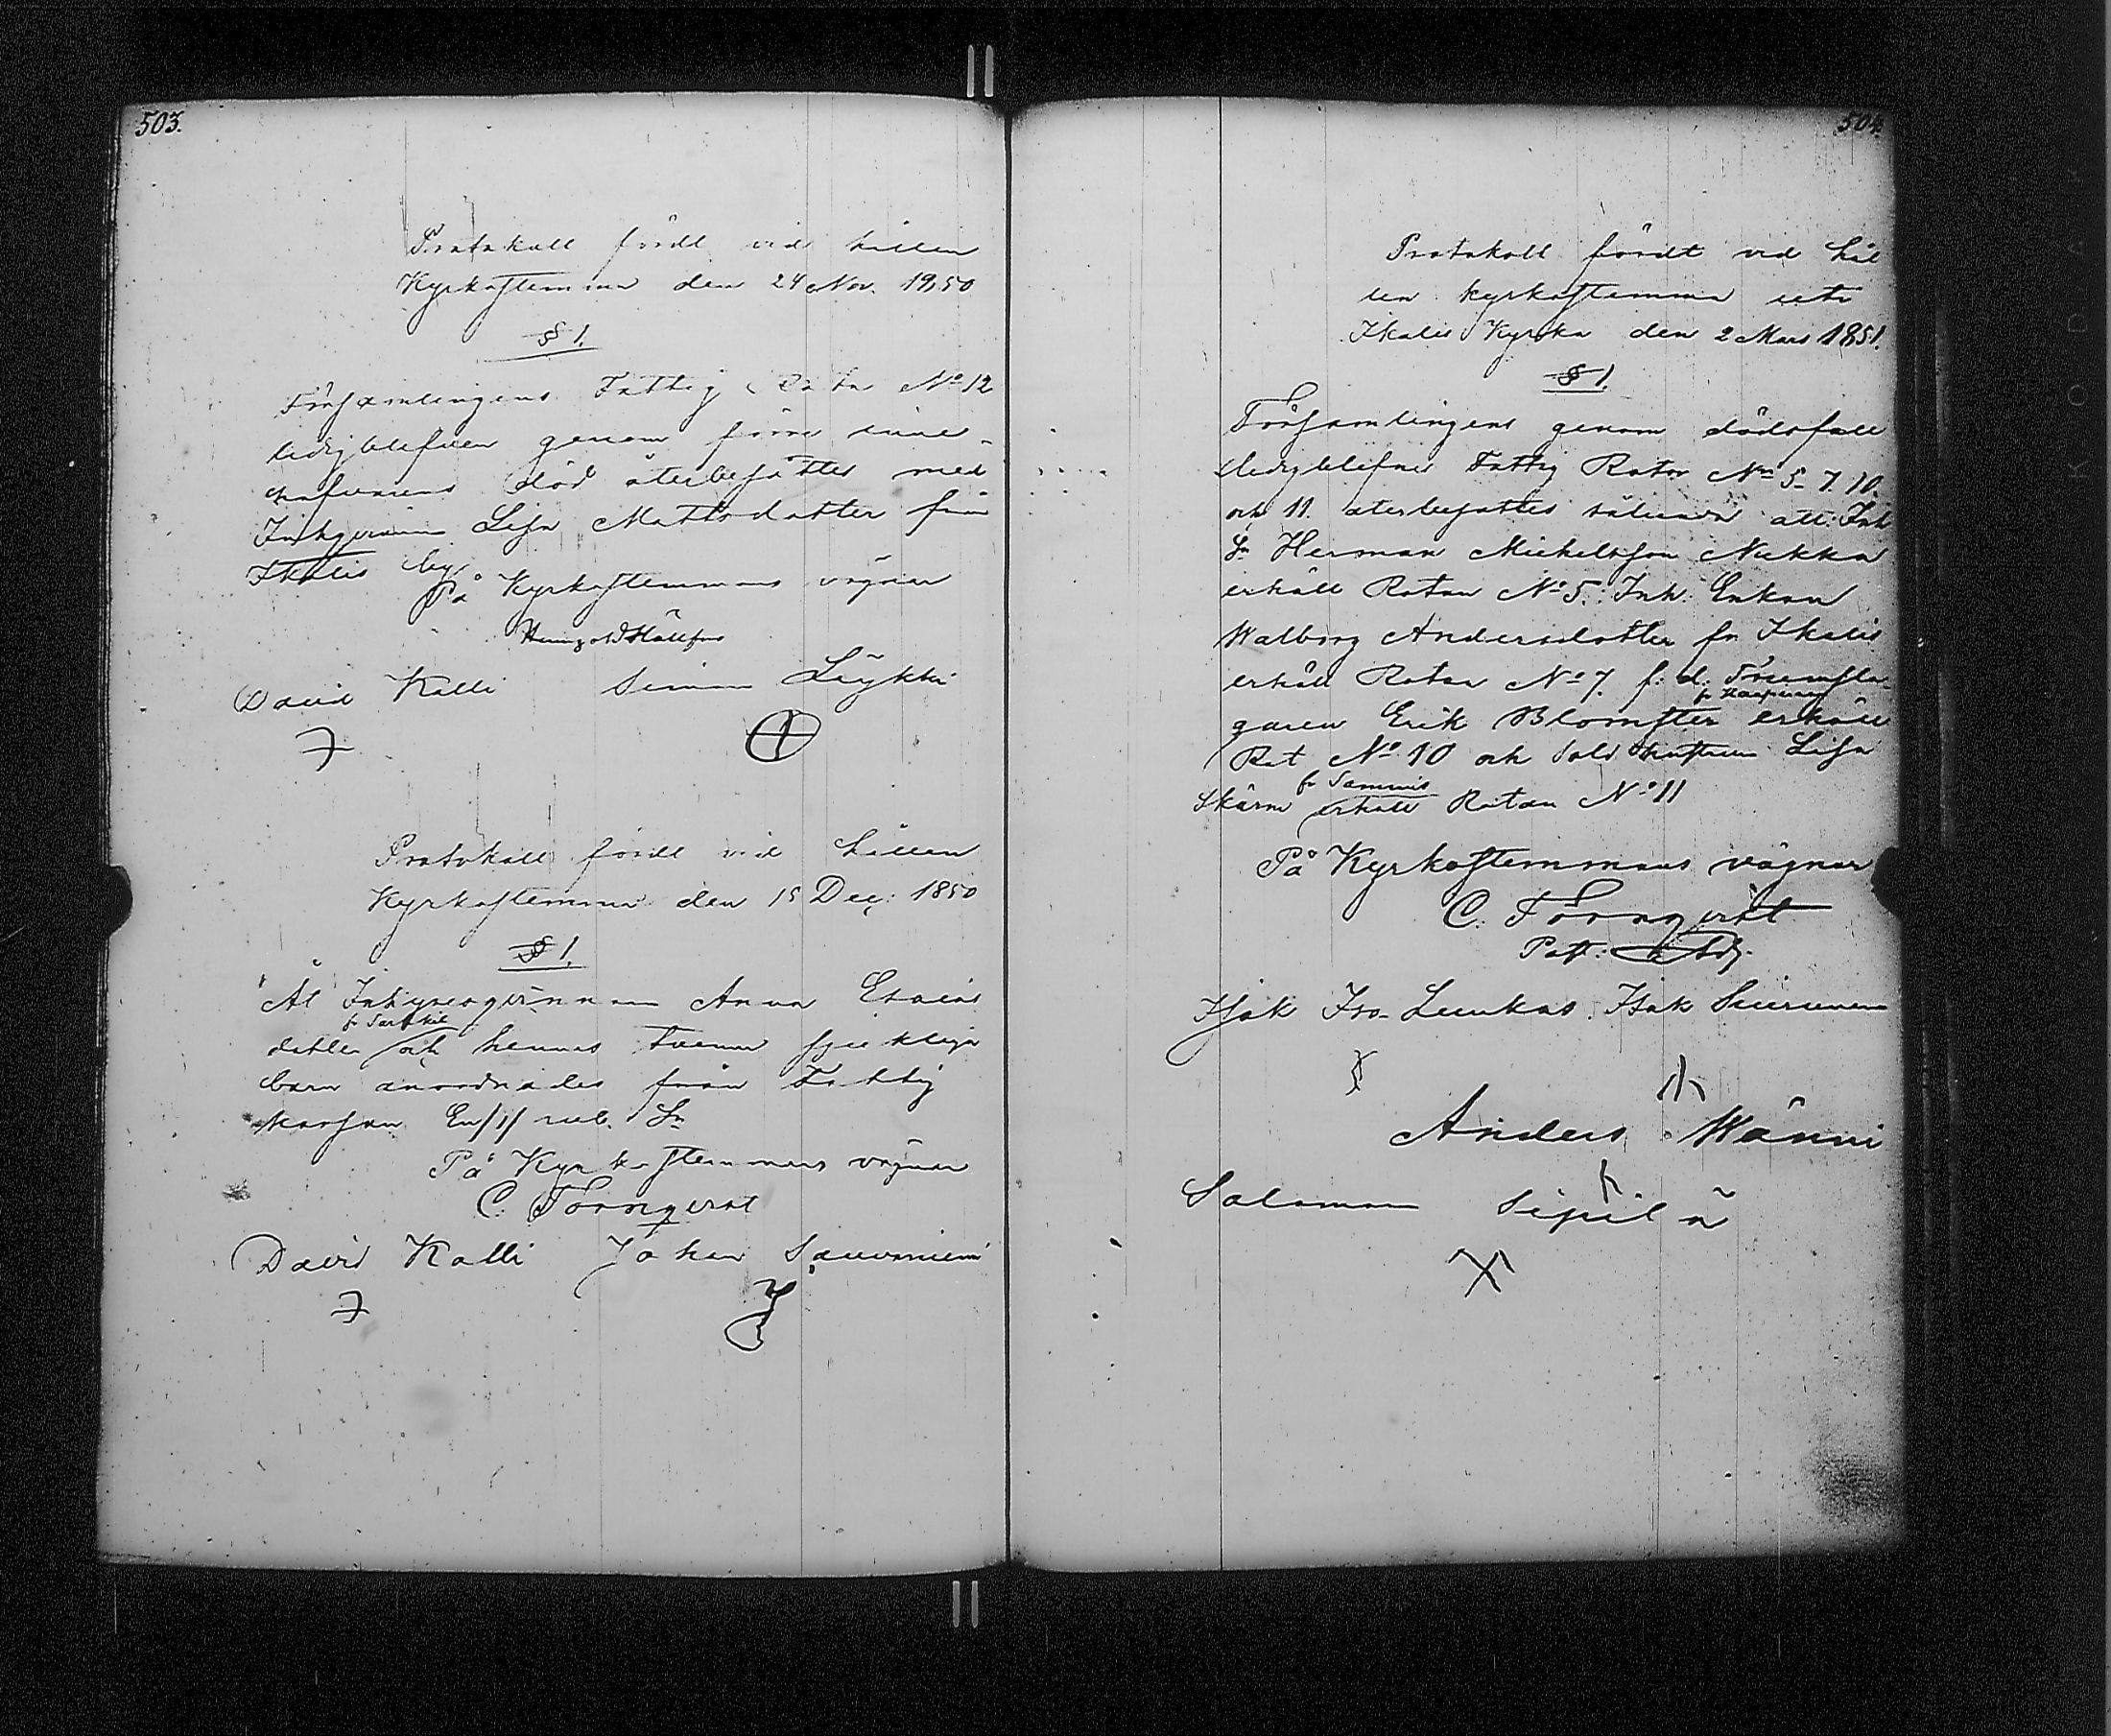 503.
Protokoll fördt vid hållen
Kyrkostemma den 24 Nov. 1850
§ 1.
Församlingens Fattig Rota No 12
ledigblefven genom förra inne-
hafvarens död återbesattes med
Inhysinn Lisa Mattsdotter från
Ikalis by
På Kyrkostemmans vägnar
David Kalli Simon Löykki
Protokoll fördt vid hållen
Kyrkostemma den 15 Dec: 1850
§ 1.
Åt Inhyses qvinnan Anna Esaias
fr Sarkkil
dotter och hennes tvenne sjukliga
barn anordnades från Fattig
kassan En /1/ rub. Sr
På Kyrkostemmans vägnar
C. Törnqvist
David Kalli Johan Sauvoniemi
504.
Protokoll fördt vid hål
len kyrkostemma uti
Ikalis Kyrka den 2 Mars 1851.
§ 1.
Församlingens genom dödsfall
ledigblefne Fattig Rotor No 5. 7. 10.
och 11. återbesattes sålunda att: Inh
Sn Herman Michelsson Nukka
erhåll Rotan No 5. Inh. Enkan
Walborg Andersdotter fr Ikalis
erhåll Rotan No 7. f: d. Trumsla-
garen Erik Blomster erhåll
Rot No 10 och Sold hustrun Lisa
fr Sammis
Skärm erhåll Rotan No 11
På Kyrkostemmans vägnar
C. Törnqvist
Past: Adj.
Isak Iso-Luukas. Isak Suurunen
Anders Wänni
Salomon Sipilä
KODAK